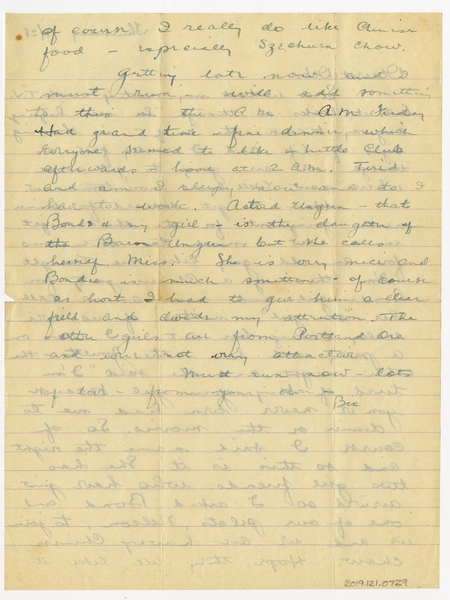 of course I really do like Chinese
food – especially Szechuen Chow.
Getting late now and I
must run – will add something
to this in the A.M. A.M. Friday
Had grand time – fine dinner which
everyone seemed to like & little Club
afterwards & home at 2 A.M. Tired
and am I sleepy now and do I
have to work. Astrid Ungern – that
Bond's girl – is the daughter of
the Baron Ungern but she calls
herself Miss. She is very nice and
Bondie is much smitten – of course
as host I had to give him a clear
field and divide my attention. The
other 2 girls are from Portland Ore
and were not very attractive.
Must run now – lots
from your
Bee
2019.121.0729